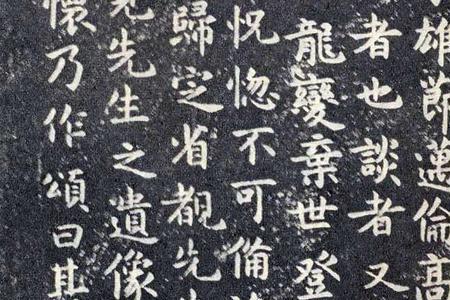 雄節邁倫高
者也談者又
龍變棄世登
怳惚不可備
歸定省覩先
見先生之遺像
懷乃作頌曰其